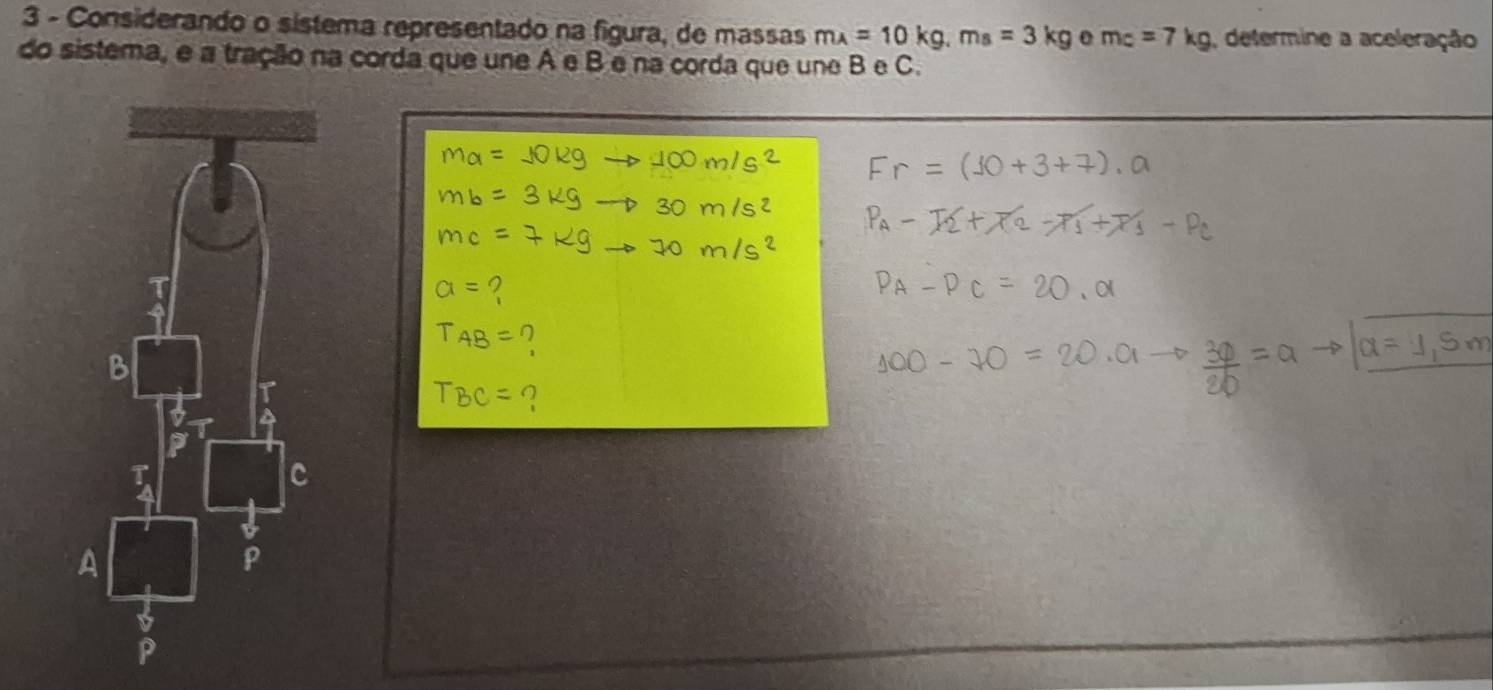 3 - Considerando o sistema representado na figura, de massas mA = 10 kg, mB = 3 kg e mC = 7 kg, determine a aceleração
do sistema, e a tração na corda que une A e B e na corda que une B e C.
ma = 10 kg → 100 m/s²
mb = 3 kg → 30 m/s²
mc = 7 kg → 70 m/s²
a = ?
TAB = ?
TBC = ?
Fr = (10 + 3 + 7) . a
PA - T2 + T2 - T1 + T1 - PC
PA - PC = 20 . a
100 - 70 = 20 . a → 30/20 = a → a = 1,5 m
T
B
T
P
T
T
C
A
P
P